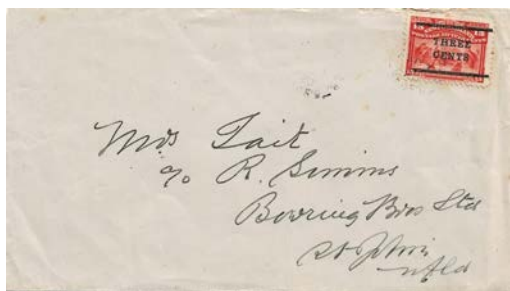 THREE
CENTS
Mrs Tait
c/o R. Simms
Bowring Bros Ltd
St John's
Nfld